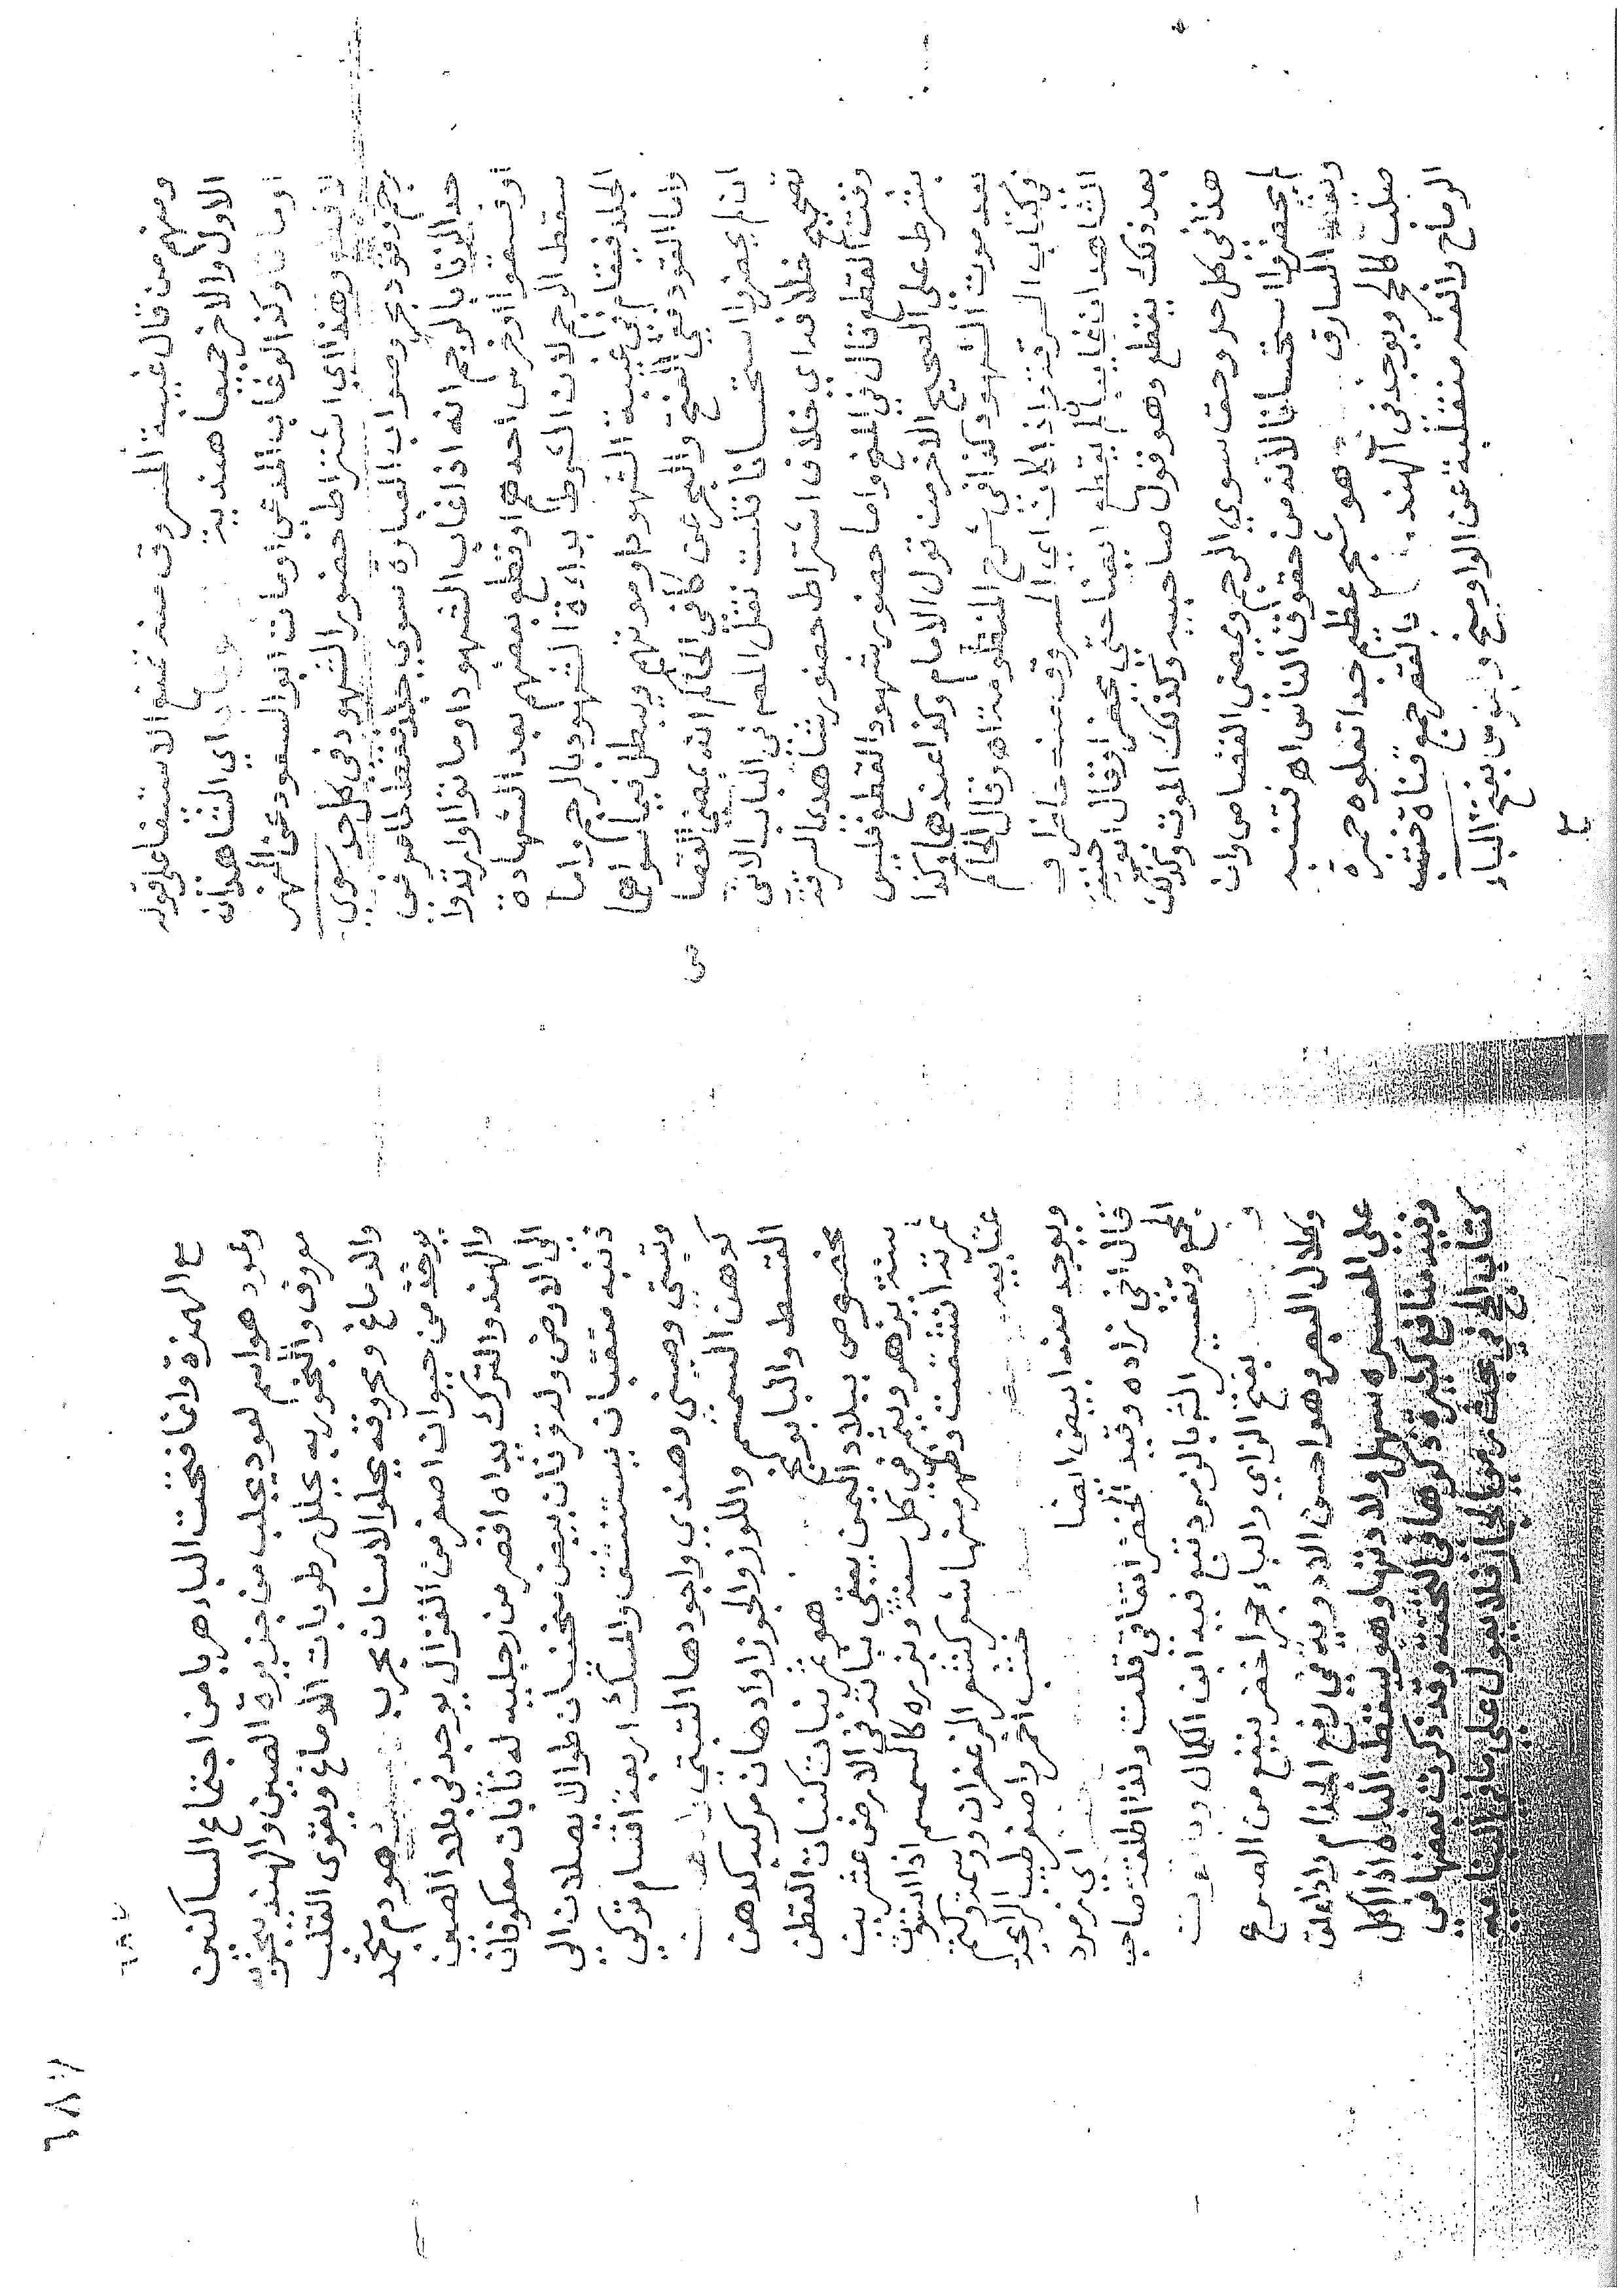 ومنهم من قال غيبة المسروق منه تمنع الاستيفا على قوله
الاول والاخر جميعا هنديه اي الشاهدان
او ماتا وكذا لو غاب المدعي او مات ابو السعود عن النهر
وهذا اي اشتراط حضور الشهود في كل حد سوي
رجم وقود بحر وصواب العبارة سوي جلد فقط لما مر في
حد الزنا بالرجم انه اذا غاب الشهود او ماتوا او ارتدوا
او فسقوا او خرس احدهم او قطع بعضهم بعد الشهادة
سقط الرجم لان الشرط بداءة الشهود بالرجم واما
الجلد فيقام في غيبة الشهود او موتهم ويبطل فيما سواها
واما القود ففي الفتح والبحر عن كافي الحاكم انه يمضي القصا
ص
ان لم يحضروا استحسانا قلت نقل المص في الباب الاتي
تصحيح خلافه اي خلاف اشتراط حضور شاهدي السرقة
وقت القطع قال في المنح واما حضور شهود القطع فليس
بشرط علي الصحيح الاخر من قول الامام وكذا عندهما وكذا
بعد موت الشهود وكذا في شرح المنظومة اه وقال الحاكم
في كتاب السرقة واذا كان اي المسروق منه حاضرا و
الشاهدان غايبان لم يقطع ايضا حتي يحضرا وقال ابو حنيفة
بعد ذلك يقطع وهو قول صاحبيه وكذلك الموت وكذلك
هذا في كل حد وحق سوي الرجم ويمضي القصاص وان
لم يحضروا استحسانا لانه من حقوق الناس اه فتنبه
السارق هو شجر عظيم جدا تعلوه حمرة
صلب ويوجد في الهند بالقصر جمع قناة خشب
الرماح والفه منقلبة عن الواو منح وابنوس بفتح الباء
مع الهمزة وانما فتحت الباء هربا من اجتماع الساكنين
وعود هو اسم لعود يجلب من جزيرة الصين والهند يبخر به
معروف والبخور به يحلل رطوبات الدماغ ويقوى القلب
والدماغ ومحروقه يجلوا الاسنان مجرب هو دم يتجمد
يوخذ من حيوان اصغر من الغزال يوجد في بلاد الصين
والهند والترك يداه اقصر من رجليه له نابان معكوفان
الى الارض وله قرنان بيض منحنيان طوال يصلان الي
ذنبه مثقبان يستنشق والمسك اربعة اقسام تركي
وتبتي وصيني وهندي واجودها التبتي
كدهن السمسم واللوز والجوز او ادهان مركبة كدهن
القسط والبابونج هو ثمر نبات كنبات القطن
مخصوص ببلاد اليمن يبقي نباته في الارض عشرين
سنة يزهر ويثمر في كل سنة وبزره كالسمسم اذا استوت
ثمرته انشقت وظهر منها شعر كشعر الزعفران
خشب احمر واصفر طيب الرائحة
ويوجد منه ابيض ايضا اي زمرد
قال اخي زاده وقيد الخضر اتفاقي قلت ولذا اطلقه صاحب
المجمع وتفسيره بالزمرد تبع فيه ابن الكمال
بفتح الزاي والباء حجر اخضر ينفع من الصرع
وكلال البصر وهو احسن الادوية في رفع الجذام واذا علق
على المعسرة سهل ولادتها وهو يسقط الباه اذا اكل
وفيه منافع كثيرة ذكرها في التحفة وقد ذكرت بعضها في
كتابي في بحث فلا يعول على ما في البنايه
٦٨٧